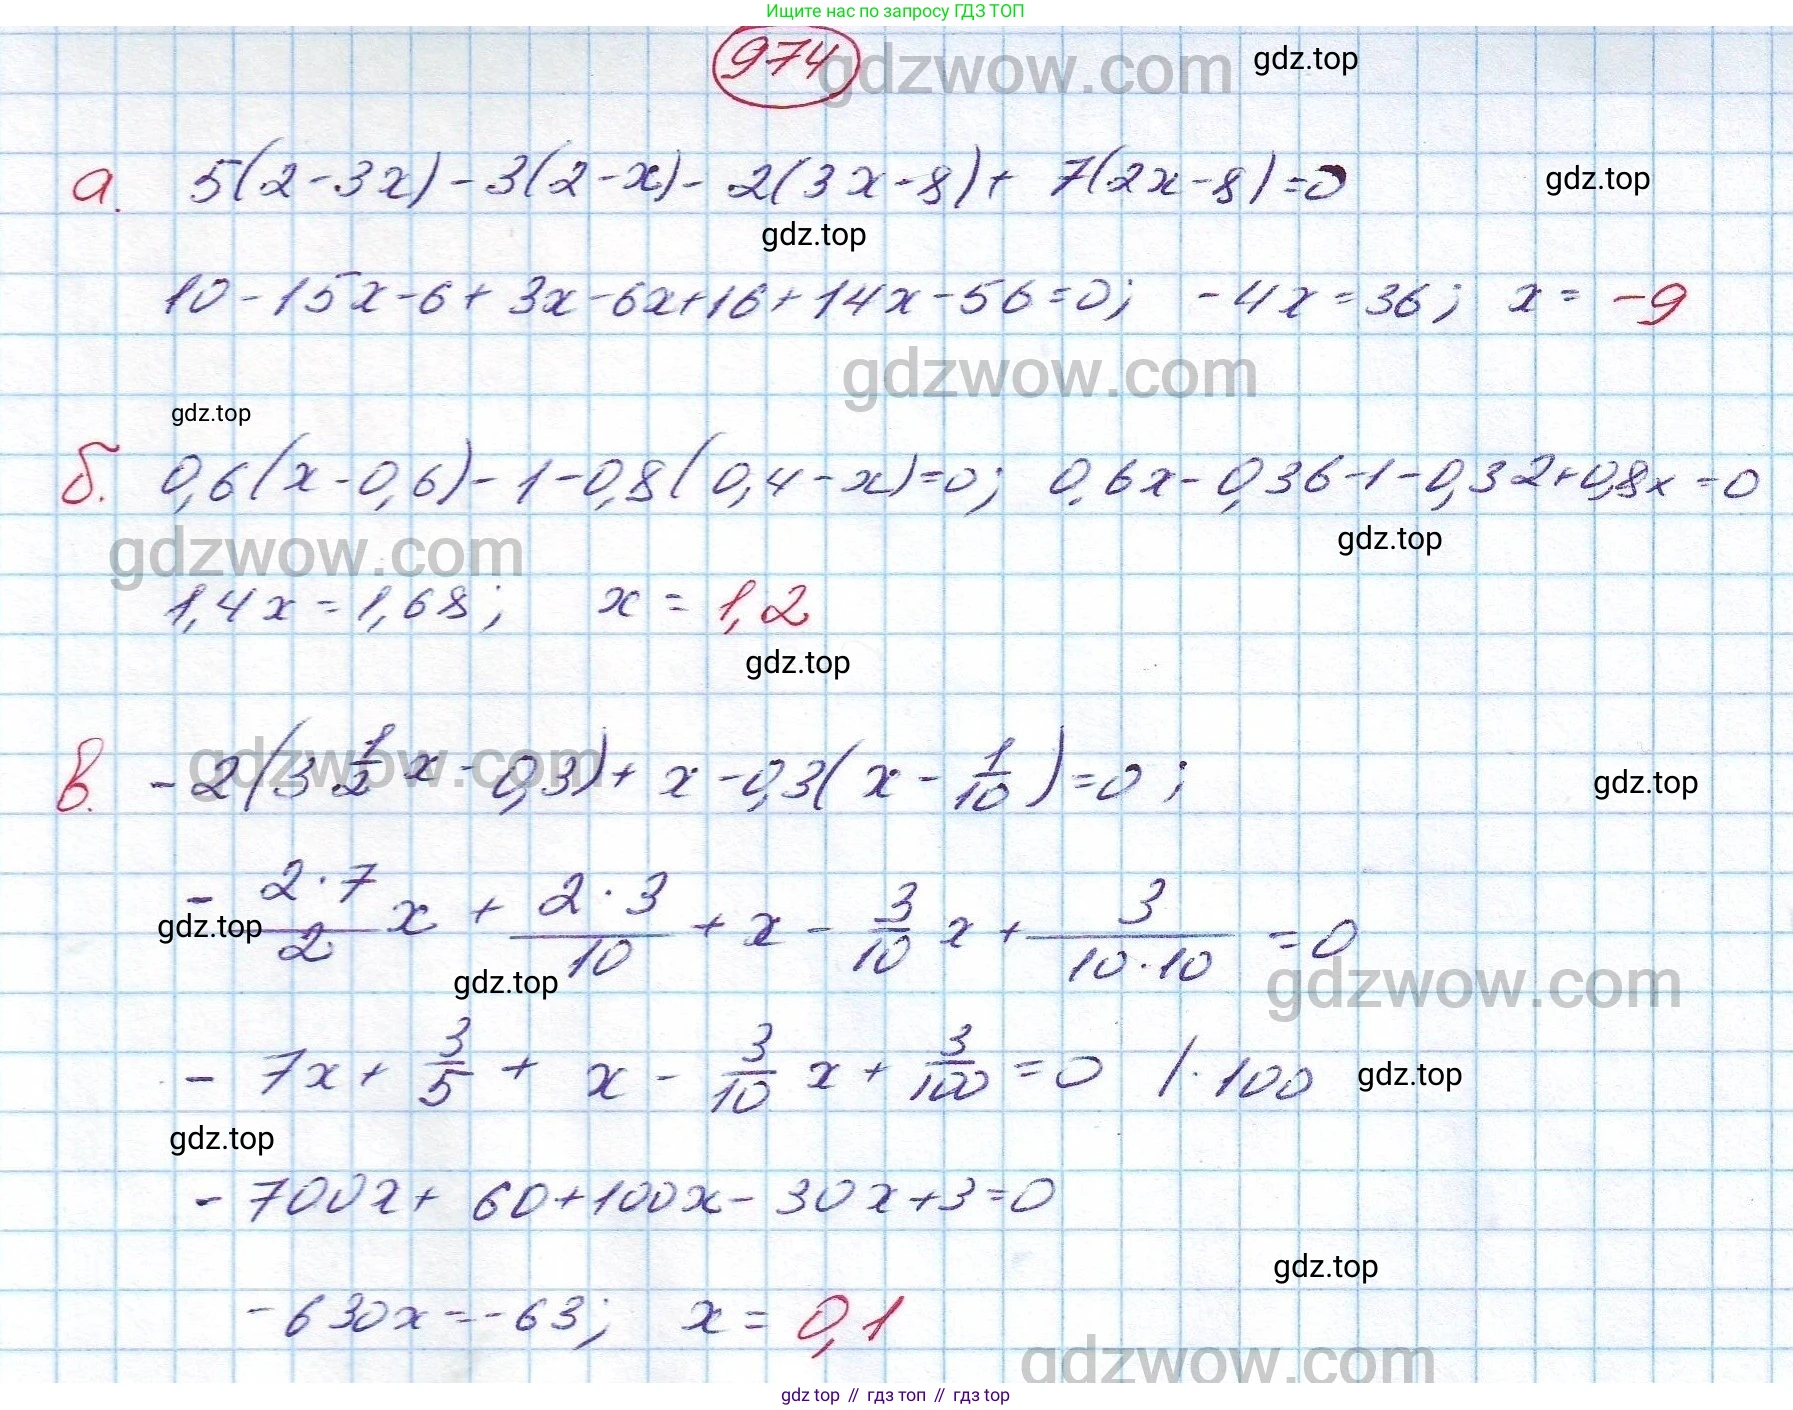 Ищите нас по запросу ГДЗ ТОП
974 gdzwow.com gdz.top
а. 5(2-3x)-3(2-x)-2(3x-8)+7(2x-8)=0 gdz.top
gdz.top
10-15x-6+3x-6x+16+14x-56=0; -4x=36; x=-9
gdzwow.com
gdz.top
б. 0,6(x-0,6)-1-0,8(0,4-x)=0; 0,6x-0,36-1-0,32+0,8x=0
gdzwow.com gdz.top
1,4x=1,68; x=1,2
gdz.top
в. -2(3 1/2 x-0,3)+x-0,3(x-1/10)=0; gdz.top
gdzwow.com
- 2·7/2 x + 2·3/10 + x - 3/10 x + 3/10·10 = 0
gdz.top gdz.top gdzwow.com
- 7x + 3/5 + x - 3/10 x + 3/100 = 0 /·100 gdz.top
gdz.top
- 700x+60+100x-30x+3=0
gdz.top
-630x=-63; x=0,1
gdzwow.com
gdz top // гдз топ // гдз top